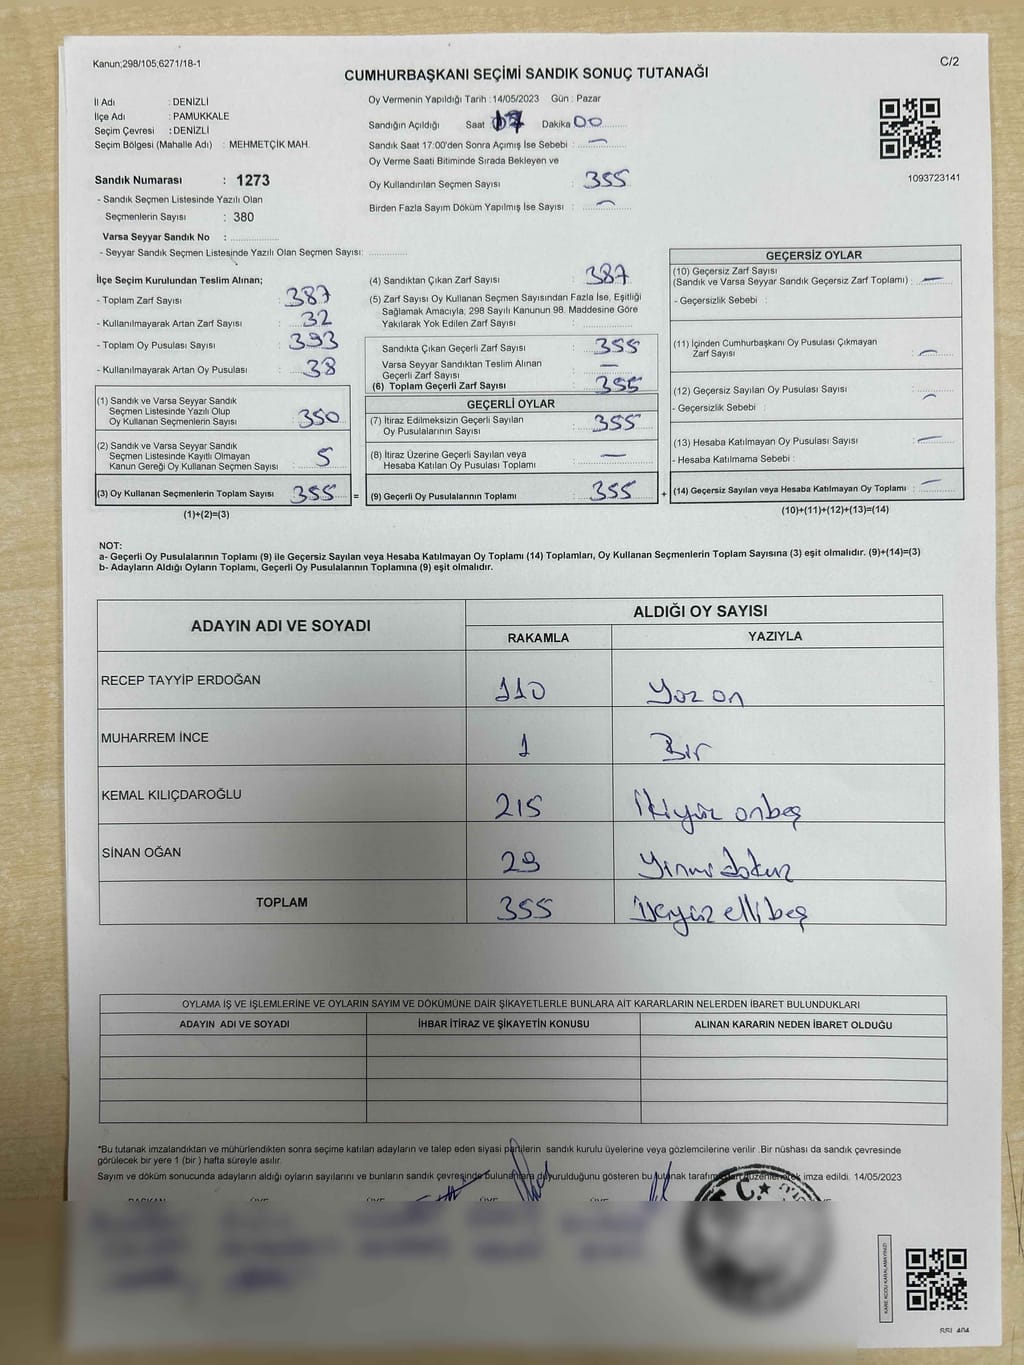 Kanun;298/105;6271/18-1
C/2
CUMHURBAŞKANI SEÇİMİ SANDIK SONUÇ TUTANAĞI
İl Adı : DENİZLİ
İlçe Adı : PAMUKKALE
Seçim Çevresi : DENİZLİ
Seçim Bölgesi (Mahalle Adı) : MEHMETÇİK MAH.
Sandık Numarası : 1273
- Sandık Seçmen Listesinde Yazılı Olan
Seçmenlerin Sayısı : 380
Varsa Seyyar Sandık No :
- Seyyar Sandık Seçmen Listesinde Yazılı Olan Seçmen Sayısı:
Oy Vermenin Yapıldığı Tarih :14/05/2023 Gün : Pazar
Sandığın Açıldığı Saat 17 Dakika 00
Sandık Saat 17:00'den Sonra Açımış İse Sebebi : —
Oy Verme Saati Bitiminde Sırada Bekleyen ve
Oy Kullandırılan Seçmen Sayısı : 355
Birden Fazla Sayım Döküm Yapılmış İse Sayısı : —
1093723141
İlçe Seçim Kurulundan Teslim Alınan;
- Toplam Zarf Sayısı : 387
- Kullanılmayarak Artan Zarf Sayısı : 32
- Toplam Oy Pusulası Sayısı : 393
- Kullanılmayarak Artan Oy Pusulası : 38
(1) Sandık ve Varsa Seyyar Sandık
Seçmen Listesinde Yazılı Olup
Oy Kullanan Seçmenlerin Sayısı : 350
(2) Sandık ve Varsa Seyyar Sandık
Seçmen Listesinde Kayıtlı Olmayan
Kanun Gereği Oy Kullanan Seçmen Sayısı : 5
(3) Oy Kullanan Seçmenlerin Toplam Sayısı : 355
(1)+(2)=(3)
=
(4) Sandıktan Çıkan Zarf Sayısı : 387
(5) Zarf Sayısı Oy Kullanan Seçmen Sayısından Fazla İse, Eşitliği
Sağlamak Amacıyla, 298 Sayılı Kanunun 98. Maddesine Göre
Yakılarak Yok Edilen Zarf Sayısı :
Sandıkta Çıkan Geçerli Zarf Sayısı : 355
Varsa Seyyar Sandıktan Teslim Alınan
Geçerli Zarf Sayısı : —
(6) Toplam Geçerli Zarf Sayısı : 355
GEÇERLİ OYLAR
(7) İtiraz Edilmeksizin Geçerli Sayılan
Oy Pusulalarının Sayısı : 355
(8) İtiraz Üzerine Geçerli Sayılan veya
Hesaba Katılan Oy Pusulası Toplamı : —
(9) Geçerli Oy Pusulalarının Toplamı : 355
+
GEÇERSİZ OYLAR
(10) Geçersiz Zarf Sayısı
(Sandık ve Varsa Seyyar Sandık Geçersiz Zarf Toplamı) : —
- Geçersizlik Sebebi :
(11) İçinden Cumhurbaşkanı Oy Pusulası Çıkmayan
Zarf Sayısı : —
(12) Geçersiz Sayılan Oy Pusulası Sayısı : —
- Geçersizlik Sebebi :
(13) Hesaba Katılmayan Oy Pusulası Sayısı : —
- Hesaba Katılmama Sebebi :
(14) Geçersiz Sayılan veya Hesaba Katılmayan Oy Toplamı : —
(10)+(11)+(12)+(13)=(14)
NOT:
a- Geçerli Oy Pusulalarının Toplamı (9) ile Geçersiz Sayılan veya Hesaba Katılmayan Oy Toplamı (14) Toplamları, Oy Kullanan Seçmenlerin Toplam Sayısına (3) eşit olmalıdır. (9)+(14)=(3)
b- Adayların Aldığı Oyların Toplamı, Geçerli Oy Pusulalarının Toplamına (9) eşit olmalıdır.
ADAYIN ADI VE SOYADI ALDIĞI OY SAYISI
RAKAMLA YAZIYLA
RECEP TAYYİP ERDOĞAN 110 Yüz on
MUHARREM İNCE 1 Bir
KEMAL KILIÇDAROĞLU 215 İkiyüz onbeş
SİNAN OĞAN 29 Yirmi dokuz
TOPLAM 355 Üçyüz elli beş
OYLAMA İŞ VE İŞLEMLERİNE VE OYLARIN SAYIM VE DÖKÜMÜNE DAİR ŞİKAYETLERLE BUNLARA AİT KARARLARIN NELERDEN İBARET BULUNDUKLARI
ADAYIN ADI VE SOYADI İHBAR İTİRAZ VE ŞİKAYETİN KONUSU ALINAN KARARIN NEDEN İBARET OLDUĞU
*Bu tutanak imzalandıktan ve mühürlendikten sonra seçime katılan adayların ve talep eden siyasi partilerin sandık kurulu üyelerine veya gözlemcilerine verilir .Bir nüshası da sandık çevresinde
görülecek bir yere 1 (bir ) hafta süreyle asılır.
Sayım ve döküm sonucunda adayların aldığı oyların sayılarını ve bunların sandık çevresinde bulunanlara duyurulduğunu gösteren bu tutanak tarafımızdan düzenlenerek imza edildi. 14/05/2023
BAŞKAN ÜYE ÜYE ÜYE ÜYE
T.C.
KARE KODU KARALAMAYINIZ!